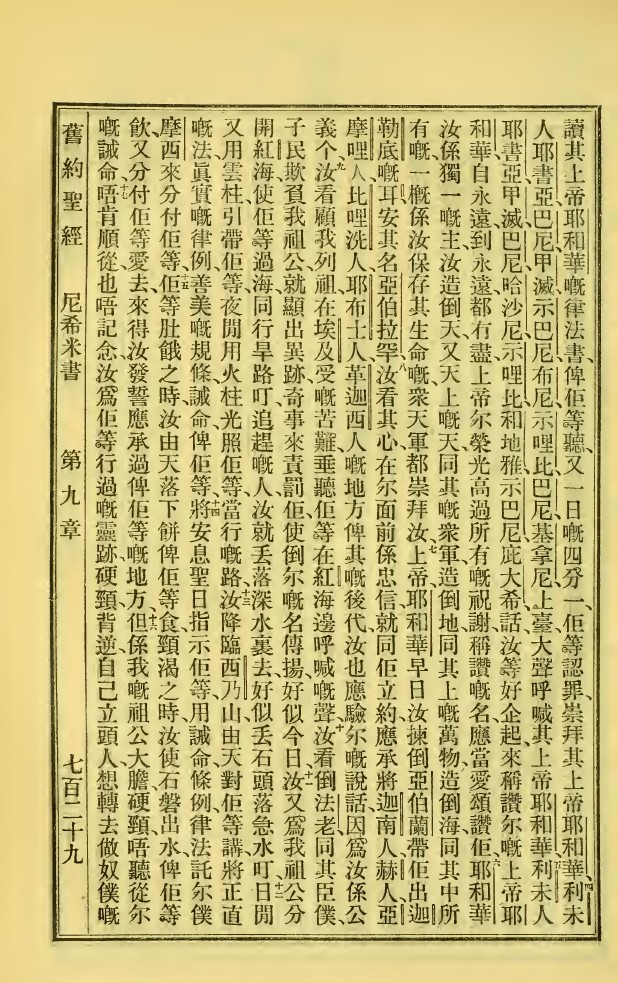 讀其上帝耶和華嘅律法書、俾佢等聽、又一日嘅四分一、佢等認罪、崇拜其上帝耶和華、四利未
人耶書亞巴尼甲滅示巴尼布尼示哩比巴尼基拿尼上臺大聲呼喊其上帝耶和華、五利未人
耶書亞甲滅巴尼哈沙尼示哩比和地雅示巴尼庇大希話汝等好企起來稱讚尔嘅上帝耶
和華自永遠到永遠都有盡上帝尔榮光高過所有嘅祝謝稱讚嘅名應當愛頌讚佢、六耶和華
汝係獨一嘅主汝造倒天又天上嘅天同其嘅衆軍、造倒地同其上嘅萬物、造倒海同其中所
有嘅一概係汝保存其生命嘅衆天軍都崇拜汝、七上帝耶和華早日汝揀倒亞伯蘭帶佢出迦
勒底嘅耳安其名亞伯拉罕、八汝看其心在尔面前係忠信就同佢立約應承將迦南人、赫人、亞
摩哩人、比哩洗人、耶布士人、革迦西人嘅地方俾其嘅後代汝也應驗尔嘅說話、因爲汝係公
義个、九汝看顧我列祖在埃及受嘅苦難垂聽佢等在紅海邊呼喊嘅聲、十汝看倒法老同其臣僕、
子民欺負我祖公就顯出異跡奇事來責罰佢使倒尔嘅名傳揚、好似今日、十一汝又爲我祖公分
開紅海、使佢等過海、同行旱路、叮追趕嘅人汝就丟落深水裏去、好似丟石頭落急水叮、十二日間
又用雲柱引帶佢等、夜間用火柱光照佢等當行嘅路、十三汝降臨西乃山、由天對佢等講、將正直
嘅法、眞實嘅律例、善美嘅規條、誡命俾佢等、十四將安息聖日指示佢等、用誡命、條例、律法託尔僕
摩西來分付佢等、十五佢等肚餓之時、汝由天落下餅俾佢等食、頸渴之時、汝使石磐出水俾佢等
飮、又分付佢等愛去來得汝發誓應承過俾佢等嘅地方、十六但係我嘅祖公大膽硬頸、唔聽從尔
嘅誡命、十七唔肯順從、也唔記念汝爲佢等行過嘅靈跡、硬頸背逆、自己立頭人、想轉去做奴僕、嘅
舊約聖經 尼希米書 第九章 七百二十九